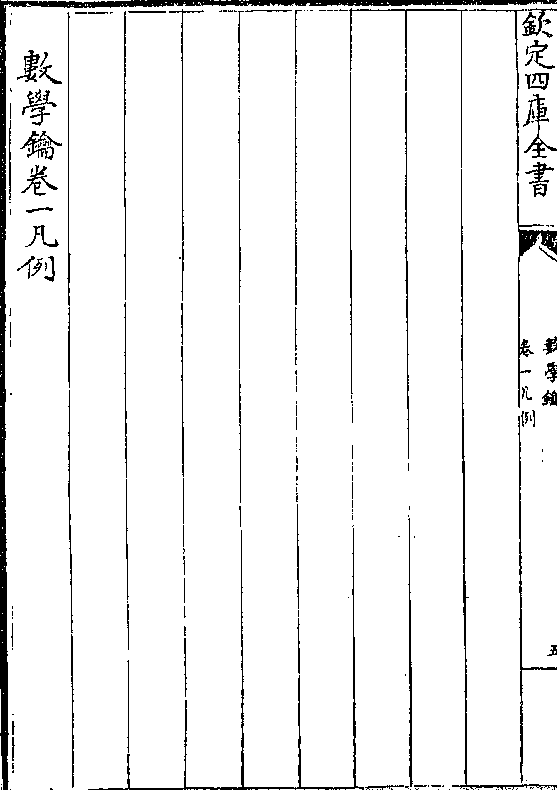 欽定四庫全書
數學鑰
卷一凡例
五
數學鑰卷一凡例